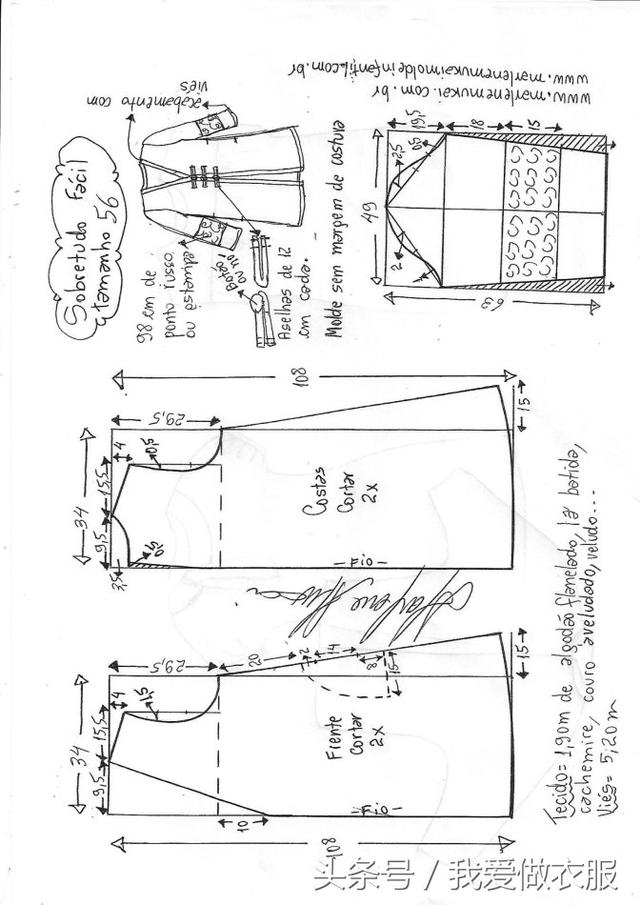 Sobretudo Fácil
tamanho 56
acabamento com
viés
98 cm de
ponto russo
ou elástico
Botão
ou nó
Aselhas de 12
cm cada.
Molde sem margem de costura
www.marlenemukai.com.br
www.marlenemukaimoldeinfantil.com.br
49
19,5
18
15
2,5
0,5
2
1
63
108
29,5
4
0,5
15,5
34
9,5
3,5
0,5
Costas
Cortar
2x
Fio
15
29,5
20
2
14
8
15
4
1,5
15,5
34
9,5
Frente
Cortar
2x
Fio
10
108
15
Tecido= 1,90m de algodão flanelado, lã batida,
cachemire, couro aveludado, veludo...
Viés= 5,20 m
头条号 / 我爱做衣服